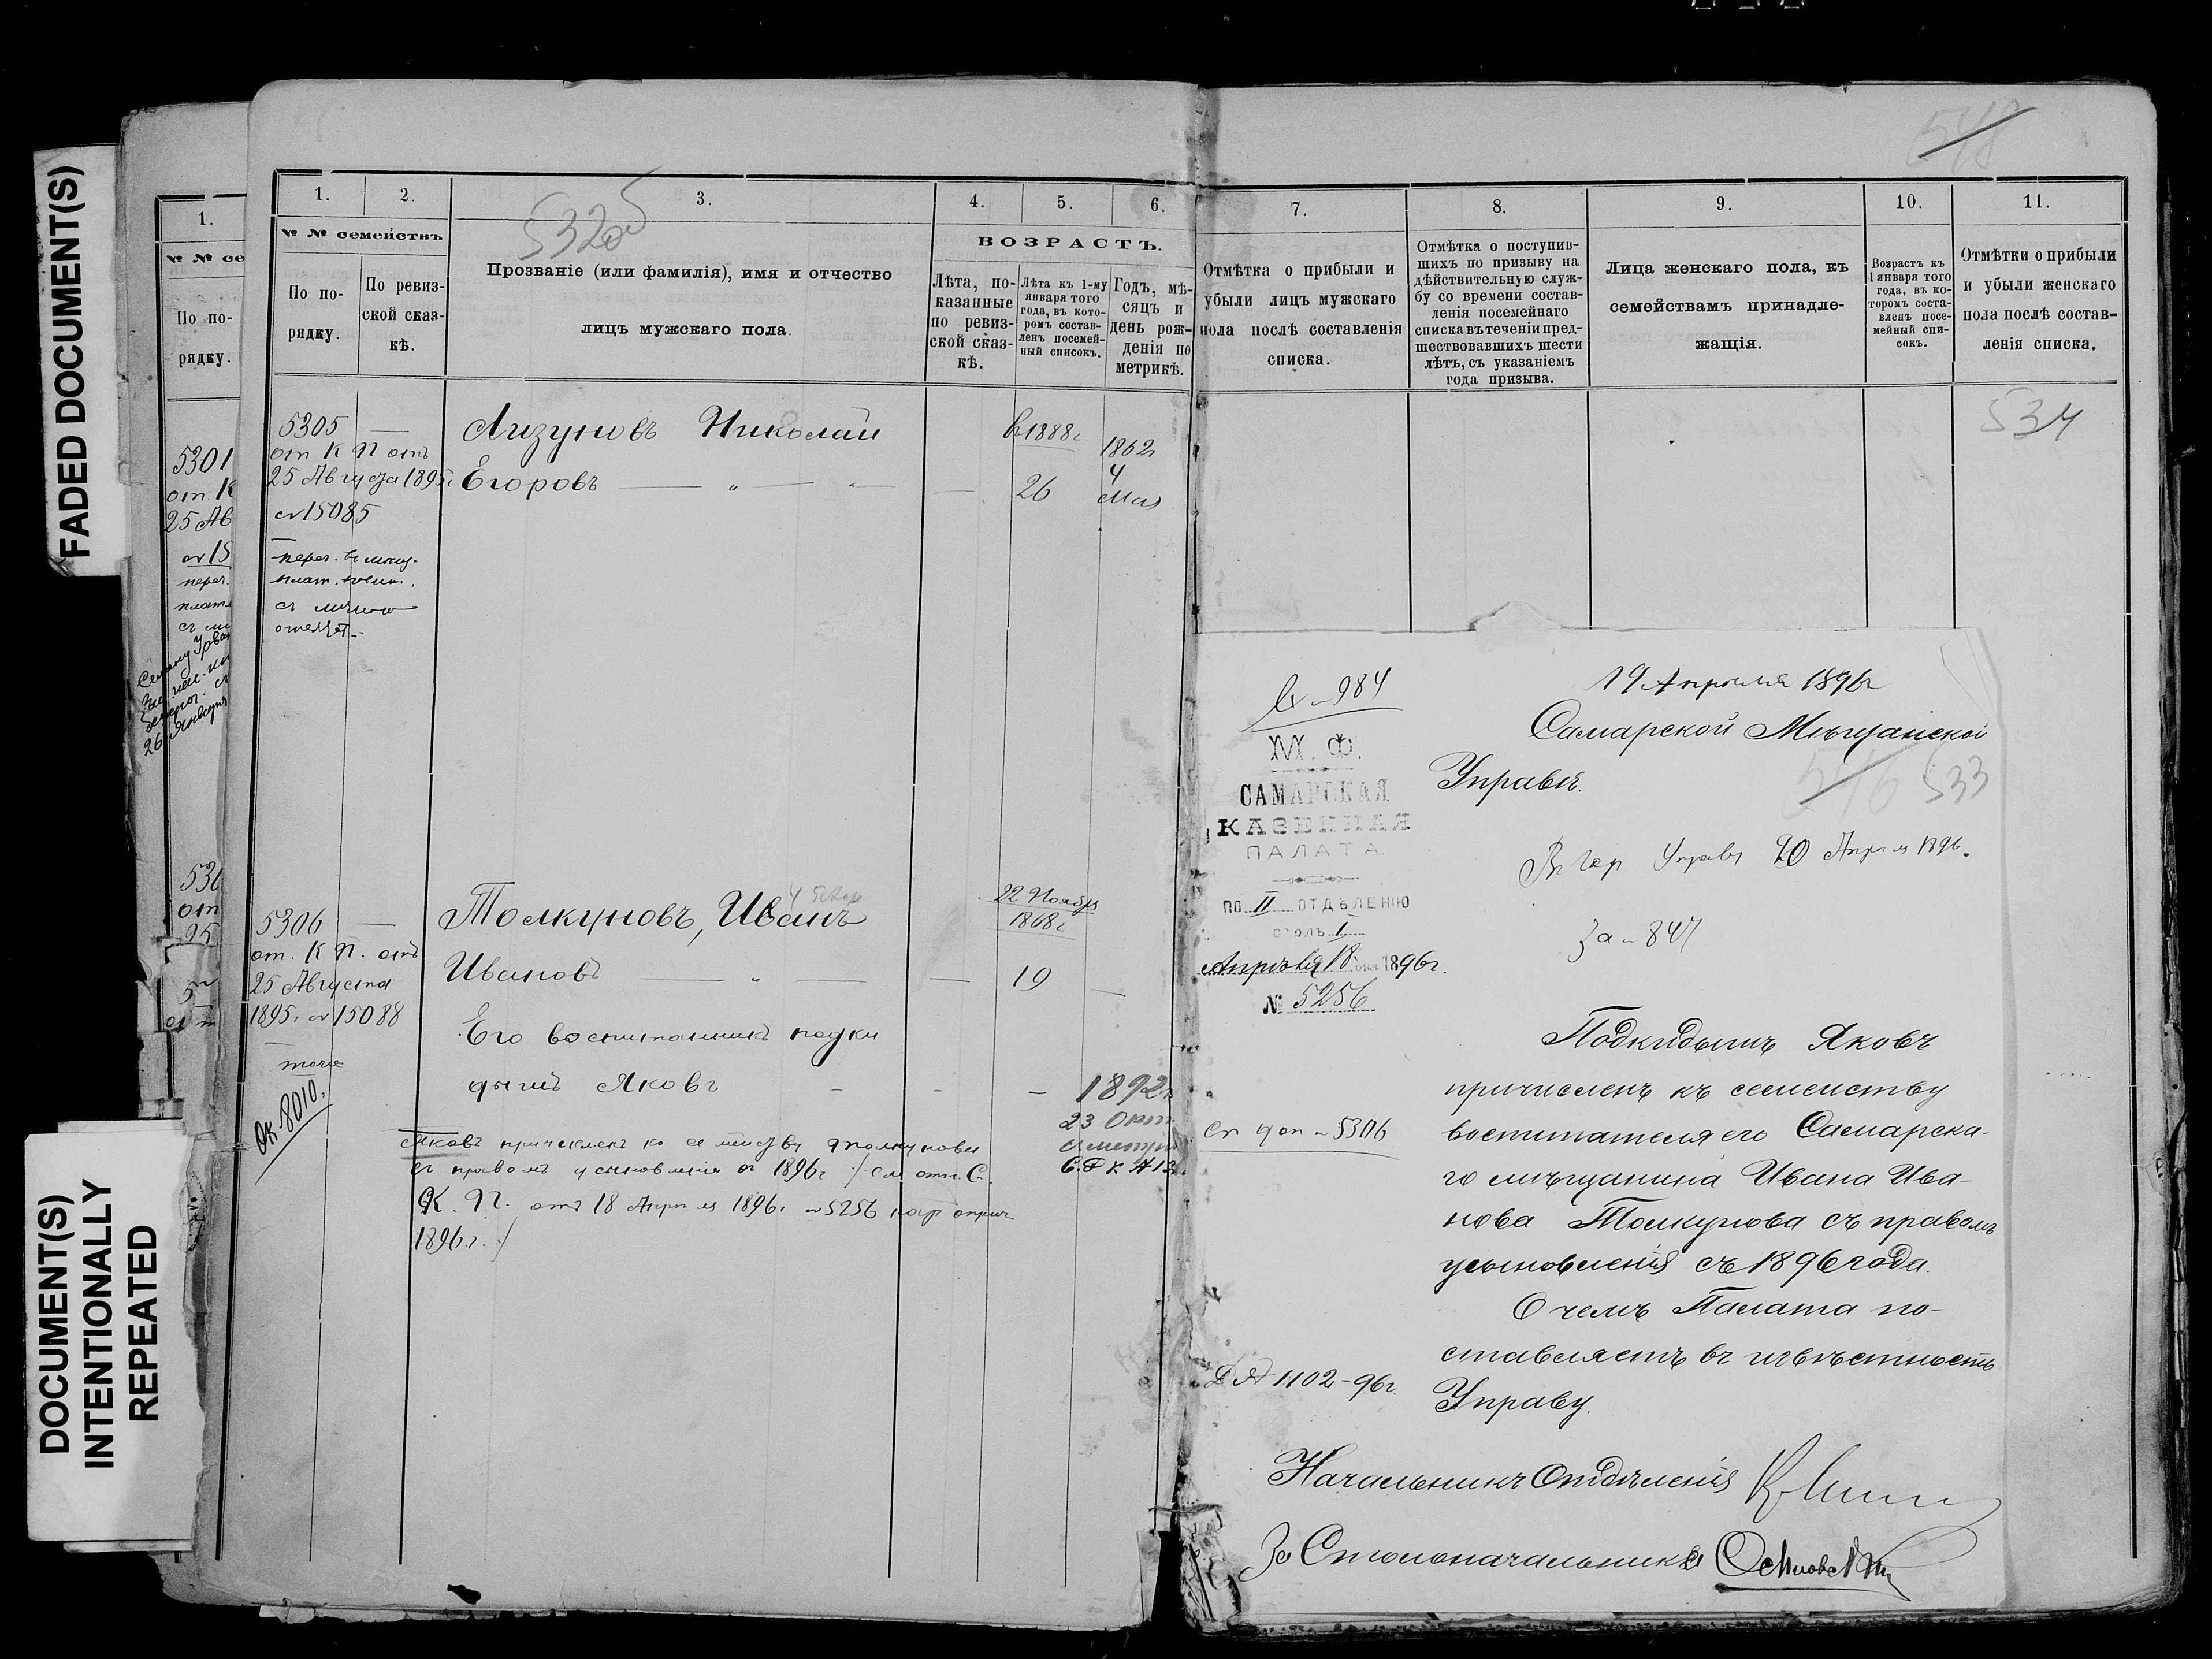 FADED DOCUMENT(S)
DOCUMENT(S)
INTENTIONALLY
REPEATED
1.
№ № се
По по-
рядку.
5301
от. К
25 Ав
№ 15
переч.
плат
съ ли
530
от
25
1. 2. 3. 4. 5. 6.
№ № семействъ.
По по-
рядку.
По ревиз-
ской сказ-
кѣ.
5320
Прозваніе (или фамилія), имя и отчество
лицъ мужскаго пола.
ВОЗРАСТЪ.
Лѣта, по-
казанныя
по ревиз-
ской сказ-
кѣ.
Лѣта къ 1-му
января того
года, въ кото-
ромъ состав-
ленъ посемей-
ный списокъ.
Годъ, мѣ-
сяцъ и
день рож-
денія по
метрикѣ.
5305 —
от К П отъ
25 Августа 1895г.
№ 15085
Лизуновъ Николай
Егоровъ — „ — „ —
въ 1888г.
26
1862г
4
Мая
5306 —
от. К П. отъ
25 Августа
1895г. № 15088
тоже
Ок. 8010.
Толкуновъ, Иванъ
Ивановъ — „ — —
22 Ноября
1868г
19 —
Его воспитанникъ подки
дышъ Яковъ - - —
1892г
23 Окт.
Яковъ причисленъ къ семейству Толкунова
съ правомъ усыновленія съ 1896г /см. отн. С.
К. П. отъ 18 Апреля 1896г. № 5256
1896г./
548
7. 8. 9. 10. 11.
Отмѣтка о прибыли и
убыли лицъ мужскаго
пола послѣ составленія
списка.
Отмѣтка о поступив-
шихъ по призыву на
дѣйствительную служ-
бу со времени состав-
ленія посемейнаго
списка въ теченіи пред-
шествовавшихъ шести
лѣтъ, съ указаніемъ
года призыва.
Лица женскаго пола, къ
семействамъ принадле-
жащія.
Возрастъ къ
1 января того
года, въ ко-
торомъ соста-
вленъ посе-
мейный спи-
сокъ.
Отмѣтки о прибыли
и убыли женскаго
пола послѣ состав-
ленія списка.
534
№ 984
М. Ф.
САМАРСКАЯ
КАЗЕННАЯ
ПАЛАТА.
ПО II ОТДѢЛЕНІЮ
СТОЛЪ I
Апрѣля 18 дня 1896г.
№ 5256
Сп доп № 5306
1102-96г.
19 Апреля 1896г
Самарской Мѣщанской
Управѣ.
546 533
20 Апреля 1896.
За № 847
Подкидышъ Яковъ
причисленъ къ семейству
воспитателя его Самарска-
го мѣщанина Ивана Ива-
нова Толкунова съ правомъ
усыновленія съ 1896 года.
О чемъ Палата по-
ставляетъ въ извѣстность
Управу.
Начальникъ Отдѣленія
За Столоначальника